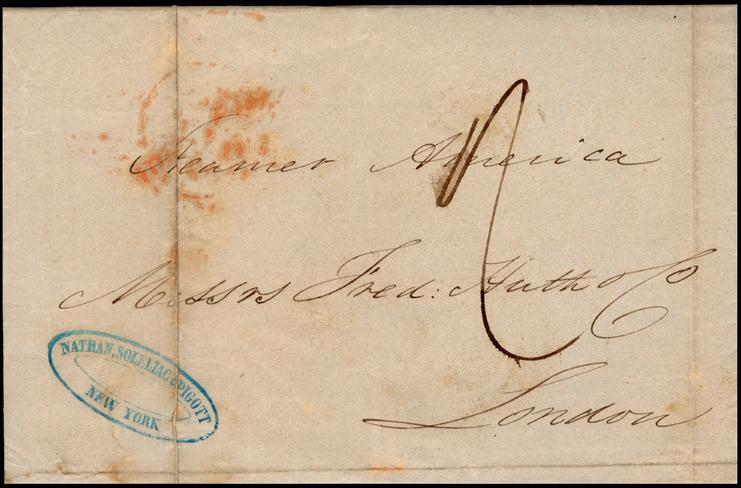 Steamer America
Messrs Fred: Huth & Co
London
NATHAN, SOZELIAC & PIGOTT
NEW YORK